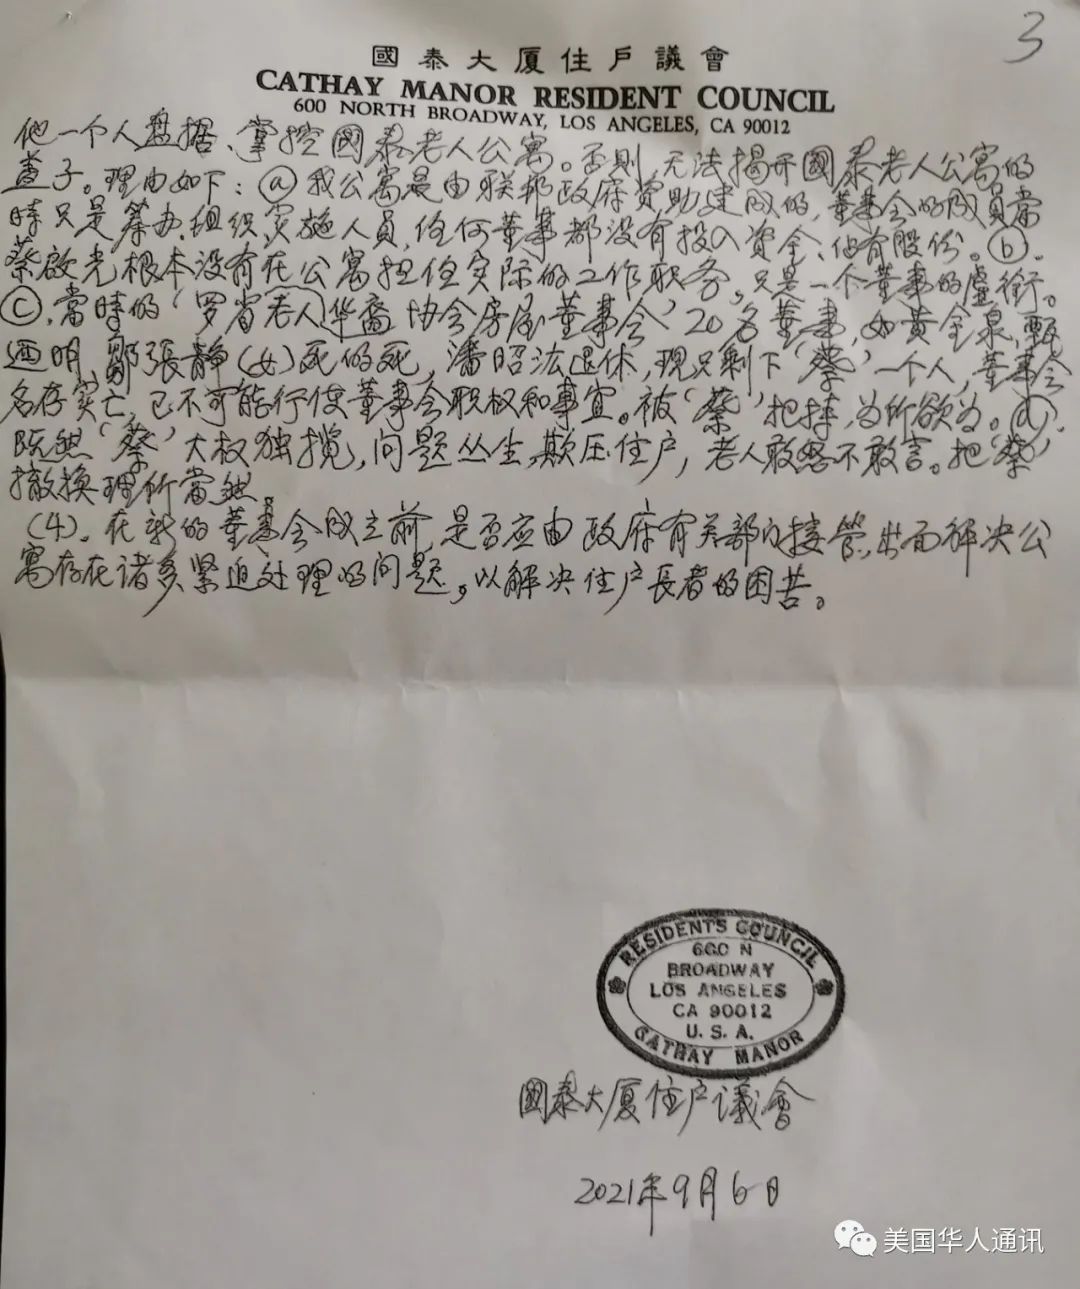 3
國泰大厦住戶議會
CATHAY MANOR RESIDENT COUNCIL
600 NORTH BROADWAY, LOS ANGELES, CA 90012
他一个人盘据、掌控國泰老人公寓。否則无法揭开國泰老人公寓的
盖子。理由如下：ⓐ我公寓是由联邦政府资助建成的，董事会的成员當
時只是筹办、组织、实施人员，任何董事都没有投入资金、佔有股份。ⓑ.
蔡啟光根本没有在公寓担任实际的工作职务，只是一个董事的虚衔。
ⓒ.當時的‘罗省老人华裔协会房屋董事会’20名董事，如黄金泉，甄
迺明，鄺張静(女)死的死，潘昭法退休，现只剩下‘蔡’一个人，董事会
名存实亡，已不可能行使董事会职权和事宜。被‘蔡’把持，为所欲为。ⓓ.
既然‘蔡’大权独揽，问题丛生，欺压住户，老人敢怒不敢言。把‘蔡’
撤换理所當然。
(4)。在新的董事会成立前，是否应由政府有关部门接管，出面解决公
寓存在诸多紧迫处理的问题，以解决住户長者的困苦。
RESIDENTS COUNCIL
600 N
BROADWAY
LOS ANGELES
CA 90012
U. S. A.
CATHAY MANOR
國泰大厦住户议會
2021年9月6日
美国华人通讯